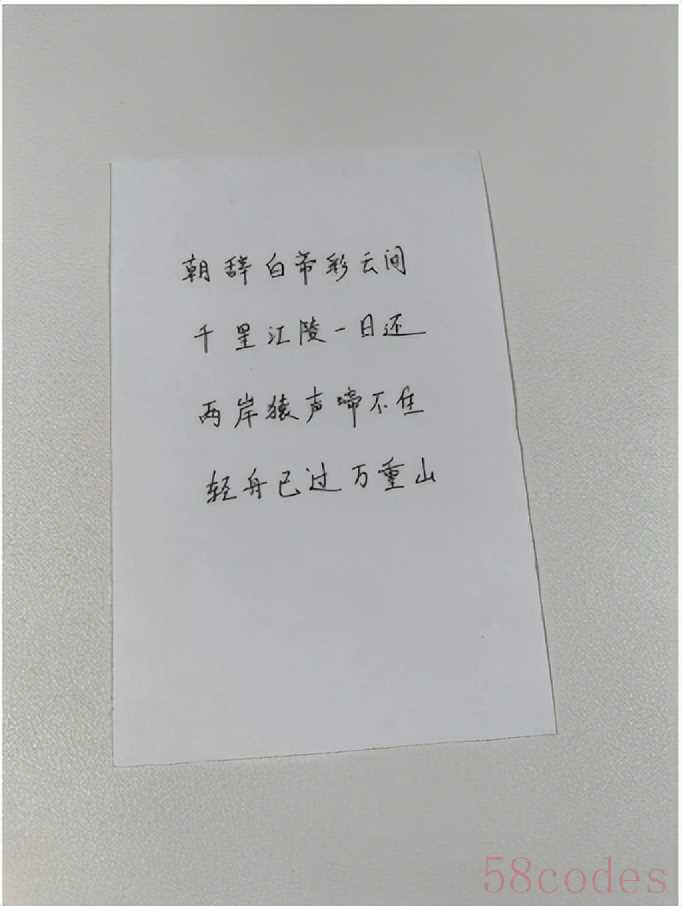 朝辞白帝彩云间
千里江陵一日还
两岸猿声啼不住
轻舟已过万重山
58codes